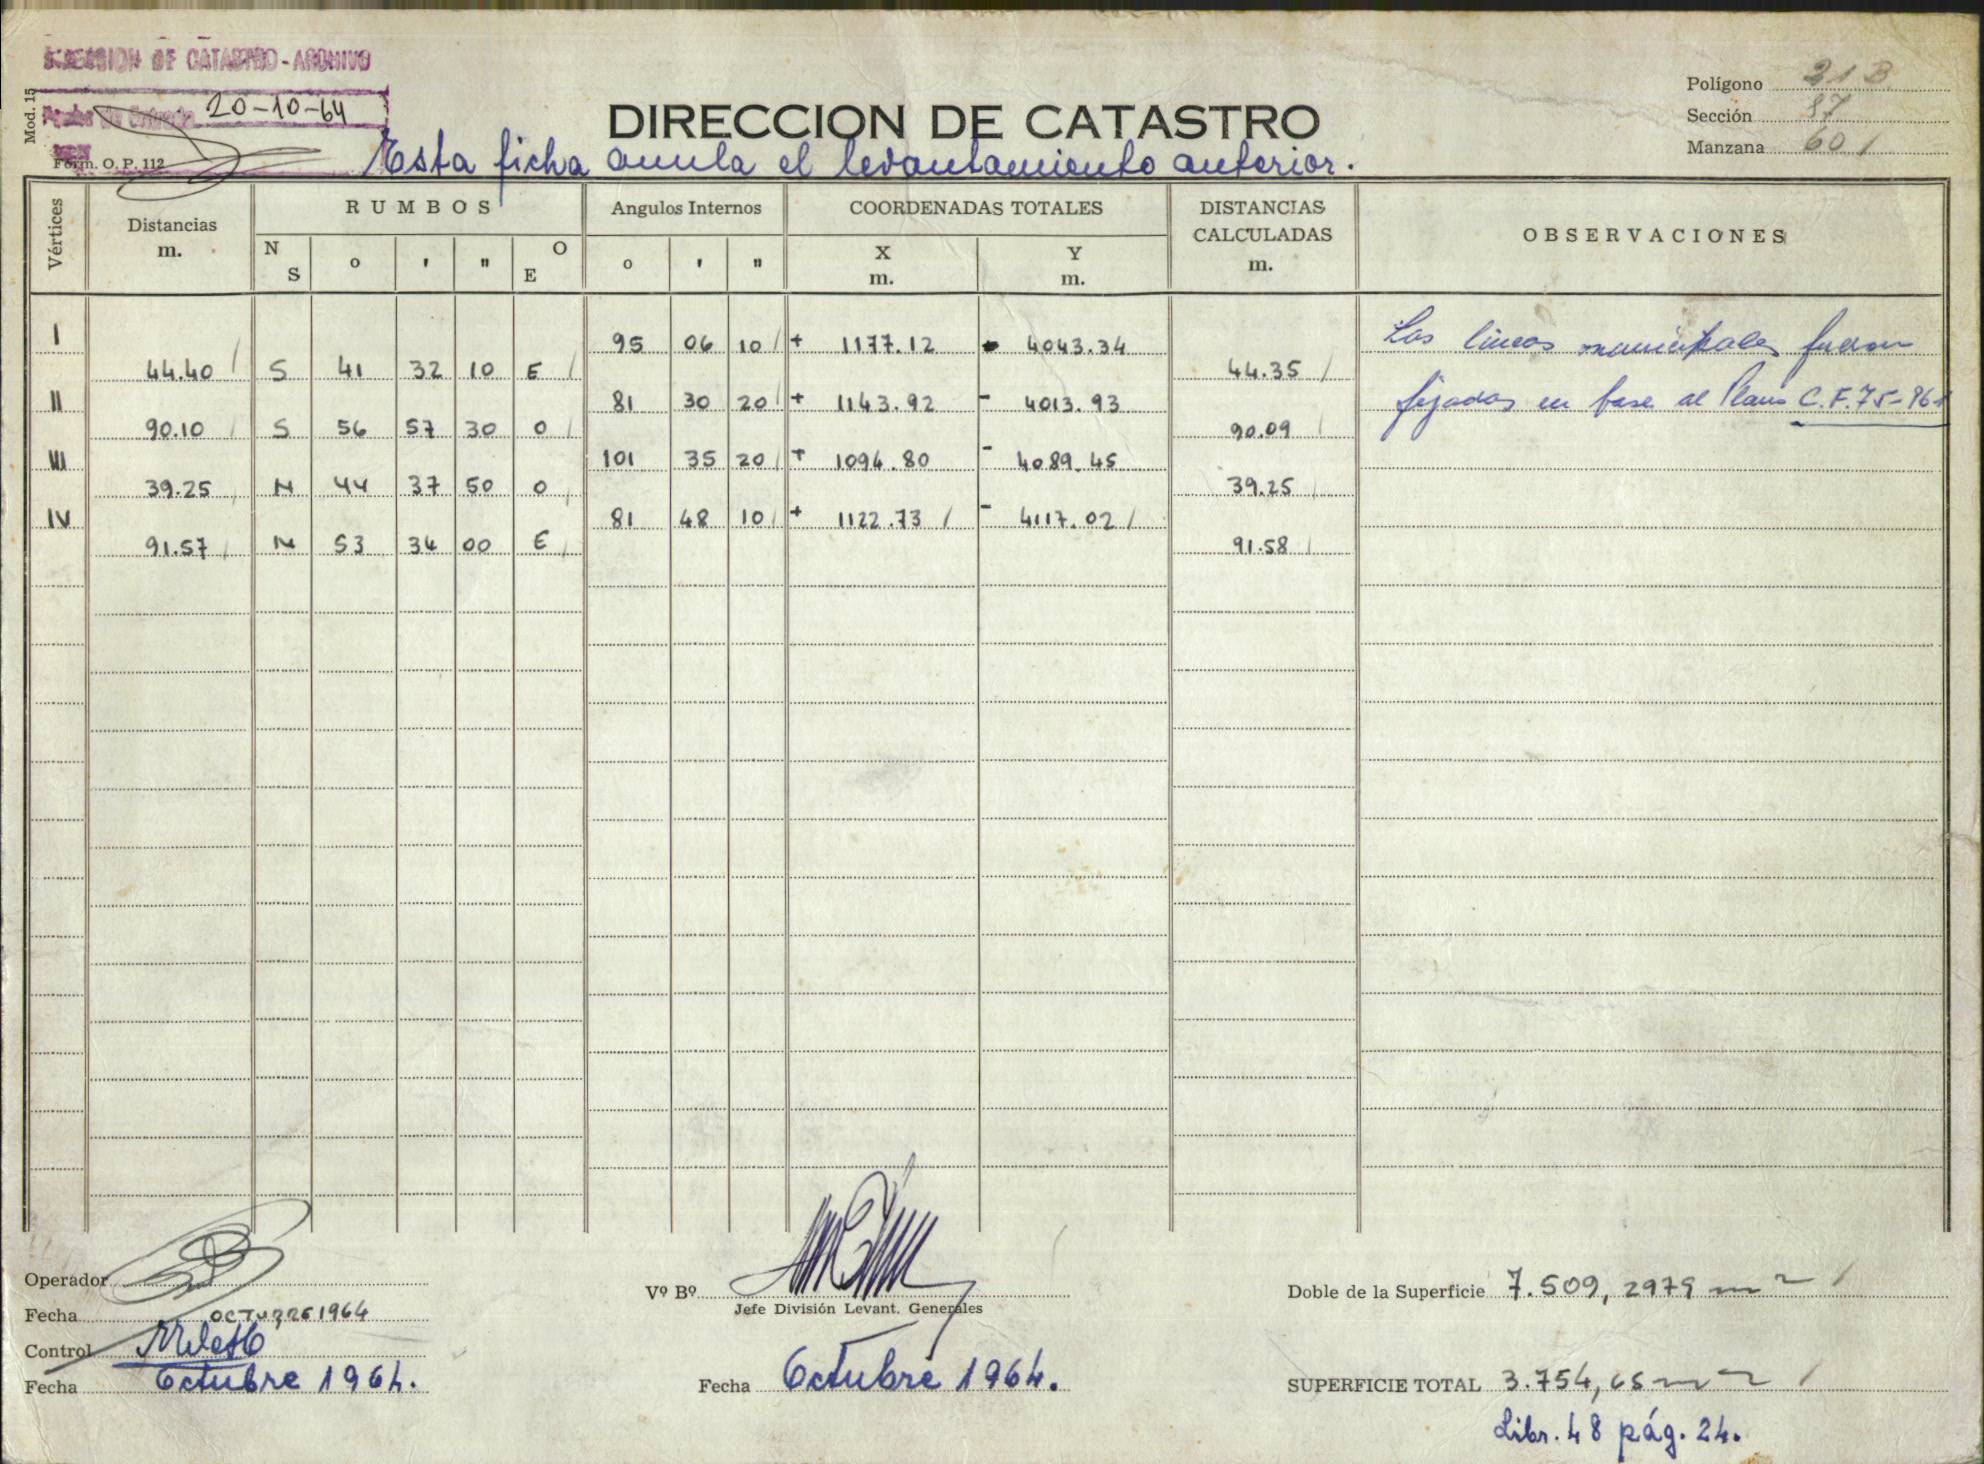 DIRECCION DE CATASTRO-ARCHIVO
Mod. 15
20-10-64
Form. O. P. 112
DIRECCION DE CATASTRO
Esta ficha anula el levantamiento anterior.
Polígono 21 B.
Sección 87
Manzana 60 /
Vértices
Distancias m.
RUMBOS
N S o ' " O E
Angulos Internos
o ' "
COORDENADAS TOTALES
X m. Y m.
DISTANCIAS CALCULADAS m.
OBSERVACIONES
I 95 06 10 / + 1177.12 - 4043.34
44.40 / S 41 32 10 E / 44.35 /
II 81 30 20 / + 1143.92 - 4013.93
90.10 / S 56 57 30 O / 90.09 /
III 101 35 20 / + 1094.80 - 4089.45
39.25 / N 44 37 50 O / 39.25 /
IV 81 48 10 / + 1122.73 / - 4117.02 /
91.57 / N 53 34 00 E / 91.58 /
Las líneas municipales fueron
fijadas en base al Plano C.F.75-961
Operador
Fecha OCTUBRE 1964
Control
Fecha Octubre 1964.
Vº Bº
Jefe División Levant. Generales
Fecha Octubre 1964.
Doble de la Superficie 7.509,2979 m2 /
SUPERFICIE TOTAL 3.754,65 m2 /
Libr. 48 pág. 24.